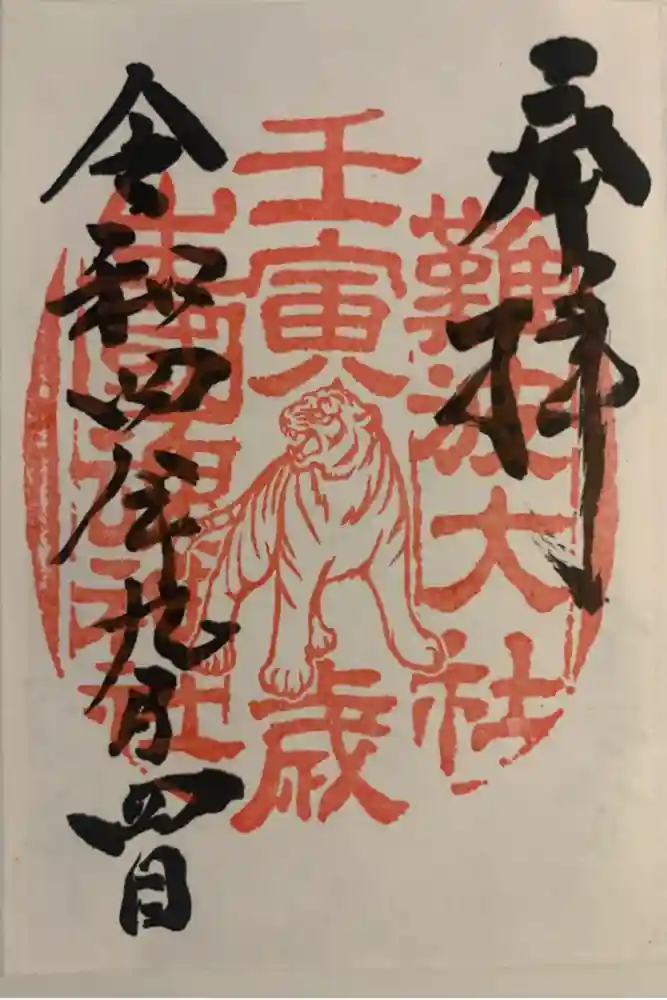 奉拝
難波大社
壬寅
歳
生國魂神社
令和四年九月四日